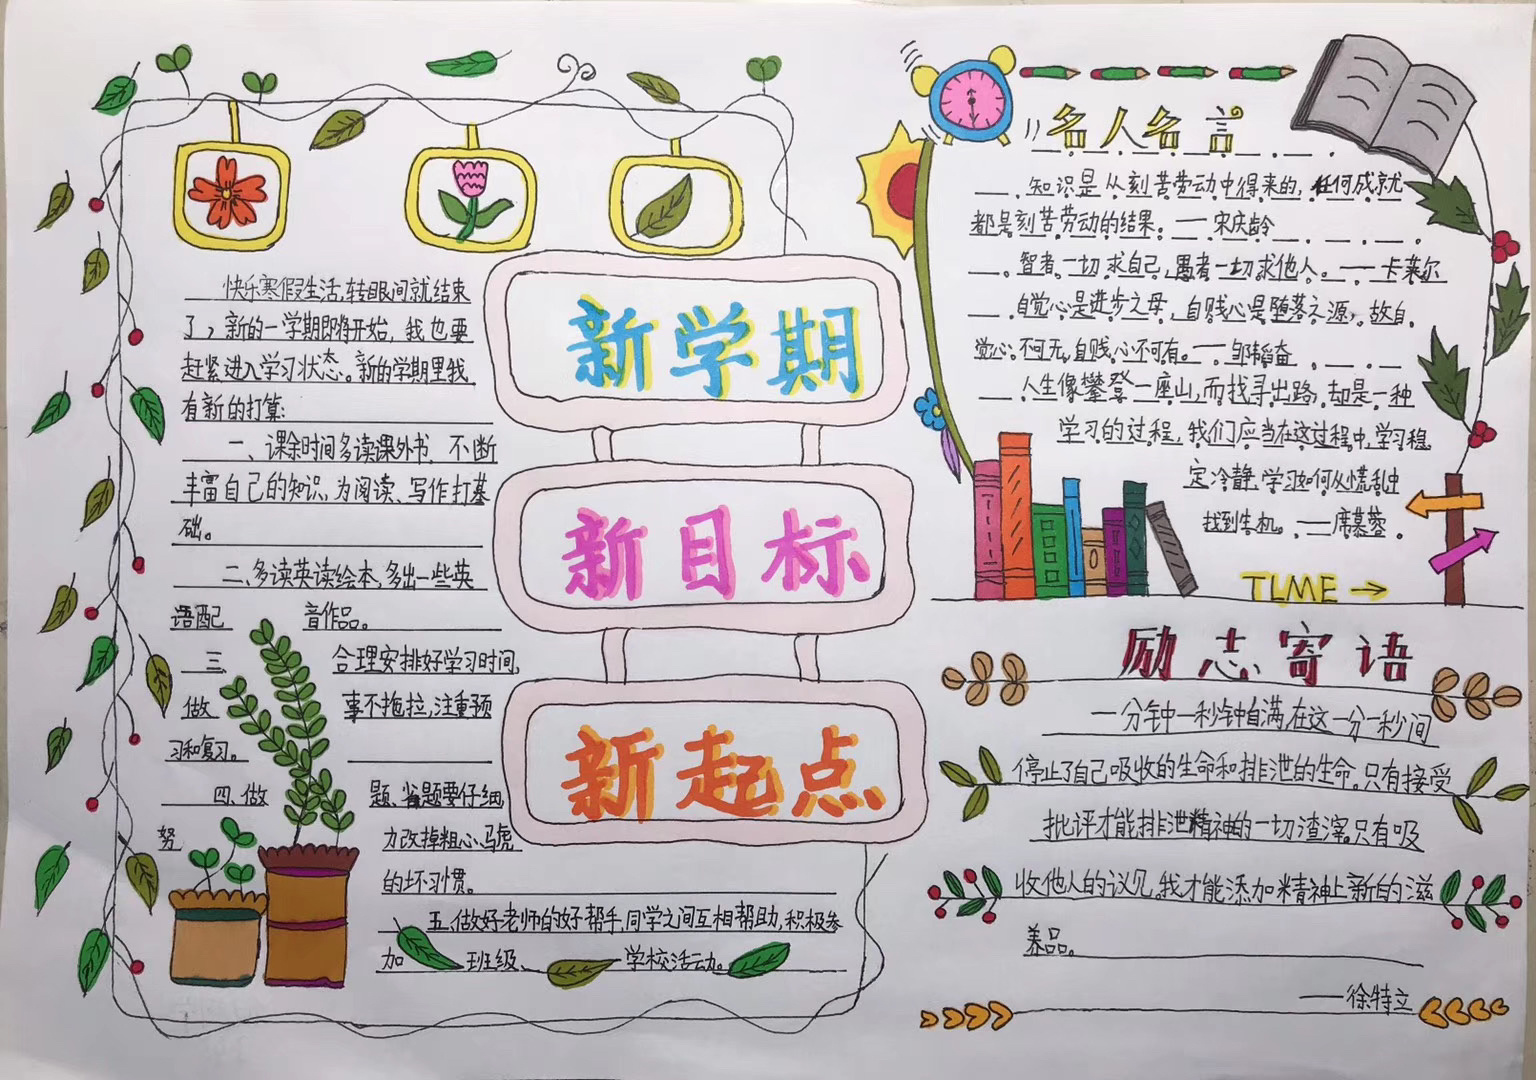 快乐寒假生活,转眼间就结束
了,新的一学期即将开始,我也要
赶紧进入学习状态。新的学期里我
有新的打算:
一、课余时间多读课外书,不断
丰富自己的知识,为阅读、写作打基
础。
二、多读英读绘本,多出一些英
语配 音作品。
三 合理安排好学习时间,
做 事不拖拉,注重预
习和复习。
四、做 题、省题要仔细,
努 力改掉粗心、马虎
的坏习惯。
五、做好老师的好帮手,同学之间互相帮助,积极参
加 班级、 学校活动。
新学期
新目标
新起点
名人名言
一、知识是从刻苦劳动中得来的,任何成就
都是刻苦劳动的结果。——宋庆龄
一。智者一切求自己,愚者一切求他人。——卡莱尔
自觉心是进步之母,自贱心是堕落之源,故自
觉心不可无,自贱心不可有。——邹韬奋
人生像攀登一座山,而找寻出路,却是一种
学习的过程,我们应当在这过程中,学习稳
定冷静,学习如何从慌乱中
找到生机。——席慕蓉。
TIME →
励志寄语
一分钟一秒钟自满,在这一分一秒间
停止了自己吸收的生命和排泄的生命。只有接受
批评才能排泄精神的一切渣滓。只有吸
收他人的议见。我才能添加精神上新的滋
养品。
——徐特立